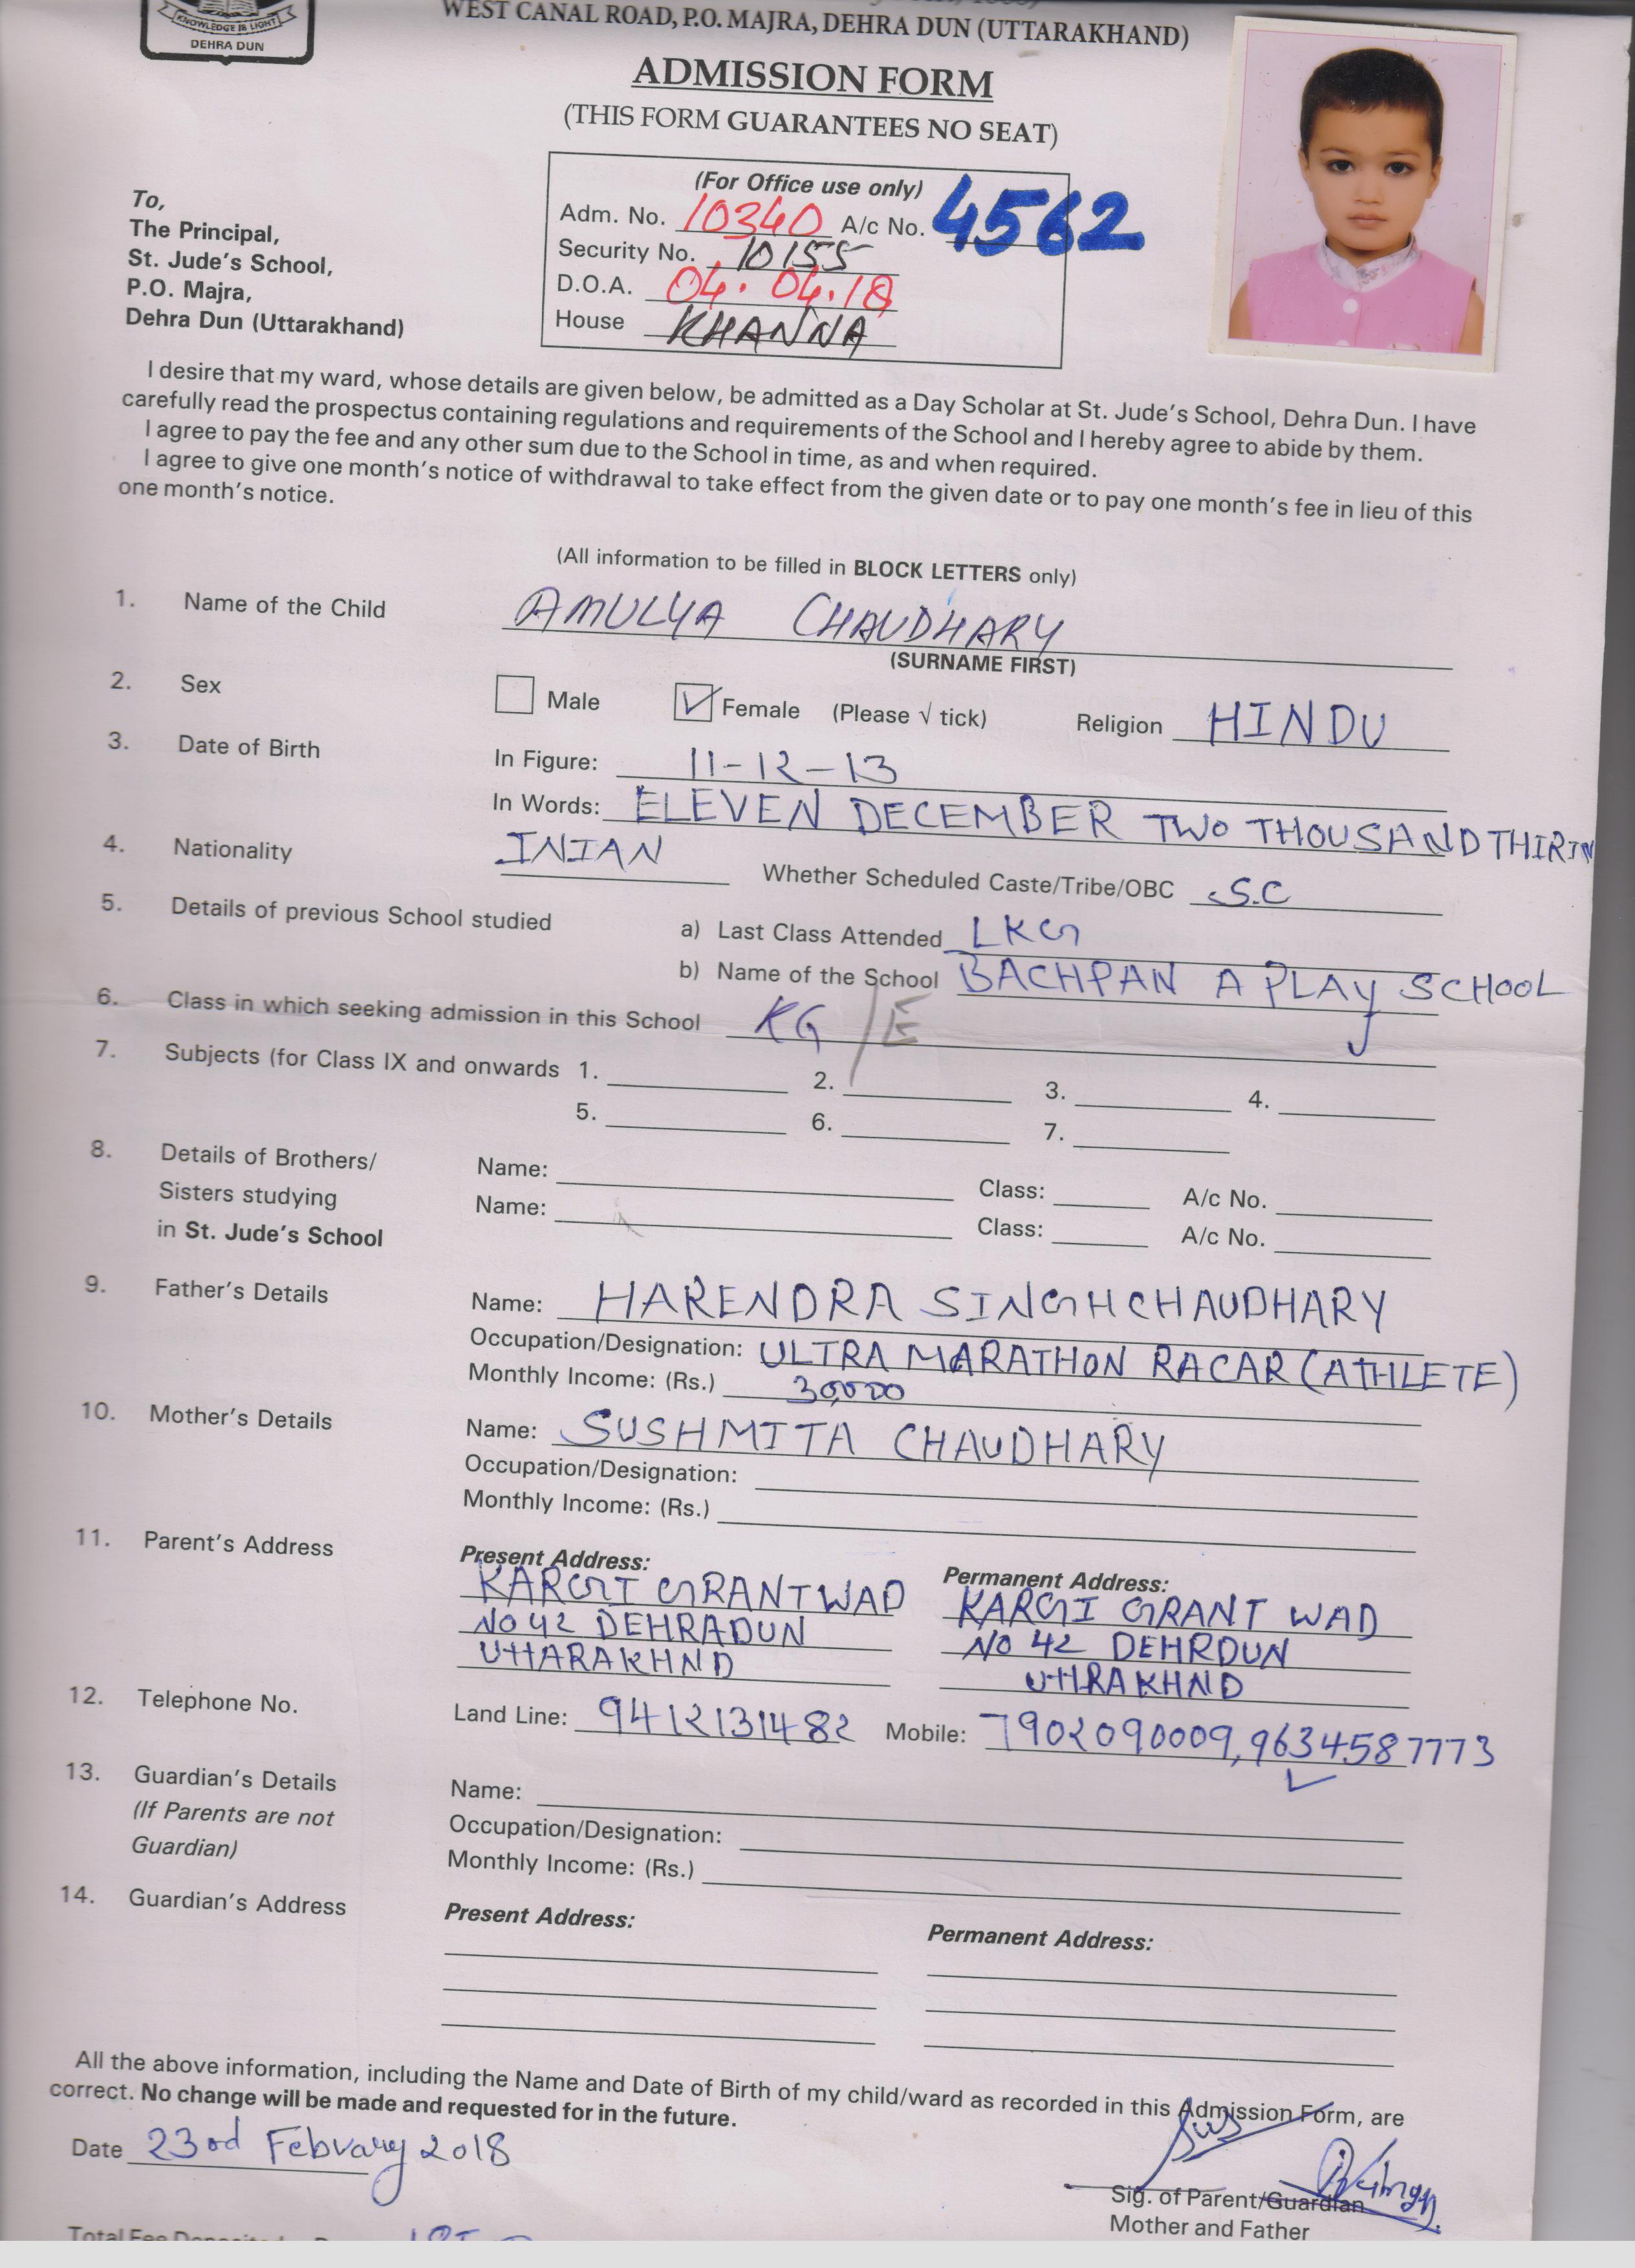 KNOWLEDGE IS LIGHT
DEHRA DUN
WEST CANAL ROAD, P.O. MAJRA, DEHRA DUN (UTTARAKHAND)
ADMISSION FORM
(THIS FORM GUARANTEES NO SEAT)
(For Office use only)
Adm. No. 10340 A/c No. 4562
Security No. 10155
D.O.A. 04.04.18
House KHANNA
To,
The Principal,
St. Jude's School,
P.O. Majra,
Dehra Dun (Uttarakhand)
I desire that my ward, whose details are given below, be admitted as a Day Scholar at St. Jude's School, Dehra Dun. I have
carefully read the prospectus containing regulations and requirements of the School and I hereby agree to abide by them.
I agree to pay the fee and any other sum due to the School in time, as and when required.
I agree to give one month's notice of withdrawal to take effect from the given date or to pay one month's fee in lieu of this
one month's notice.
(All information to be filled in BLOCK LETTERS only)
1. Name of the Child AMULYA CHAUDHARY
(SURNAME FIRST)
2. Sex Male Female (Please √ tick) Religion HINDU
3. Date of Birth In Figure: 11-12-13
In Words: ELEVEN DECEMBER TWO THOUSAND THIRIN
4. Nationality INIAN Whether Scheduled Caste/Tribe/OBC S.C
5. Details of previous School studied a) Last Class Attended LKG
b) Name of the School BACHPAN A PLAY SCHOOL
6. Class in which seeking admission in this School KG/E
7. Subjects (for Class IX and onwards 1. 2. 3. 4.
5. 6. 7.
8. Details of Brothers/ Name: Class: A/c No.
Sisters studying Name: Class: A/c No.
in St. Jude's School
9. Father's Details Name: HARENDRA SINGH CHAUDHARY
Occupation/Designation: ULTRA MARATHON RACAR (ATHLETE)
Monthly Income: (Rs.) 30,000
10. Mother's Details Name: SUSHMITA CHAUDHARY
Occupation/Designation:
Monthly Income: (Rs.)
11. Parent's Address Present Address: Permanent Address:
KARGI GRANT WAD KARGI GRANT WAD
NO 42 DEHRADUN NO 42 DEHRDUN
UTTARAKHND UTTRAKHND
12. Telephone No. Land Line: 9412131482 Mobile: 7902090009, 9634587773
13. Guardian's Details Name:
(If Parents are not Occupation/Designation:
Guardian) Monthly Income: (Rs.)
14. Guardian's Address Present Address: Permanent Address:
All the above information, including the Name and Date of Birth of my child/ward as recorded in this Admission Form, are
correct. No change will be made and requested for in the future.
Date 23rd February 2018
Sig. of Parent/Guardian
Mother and Father